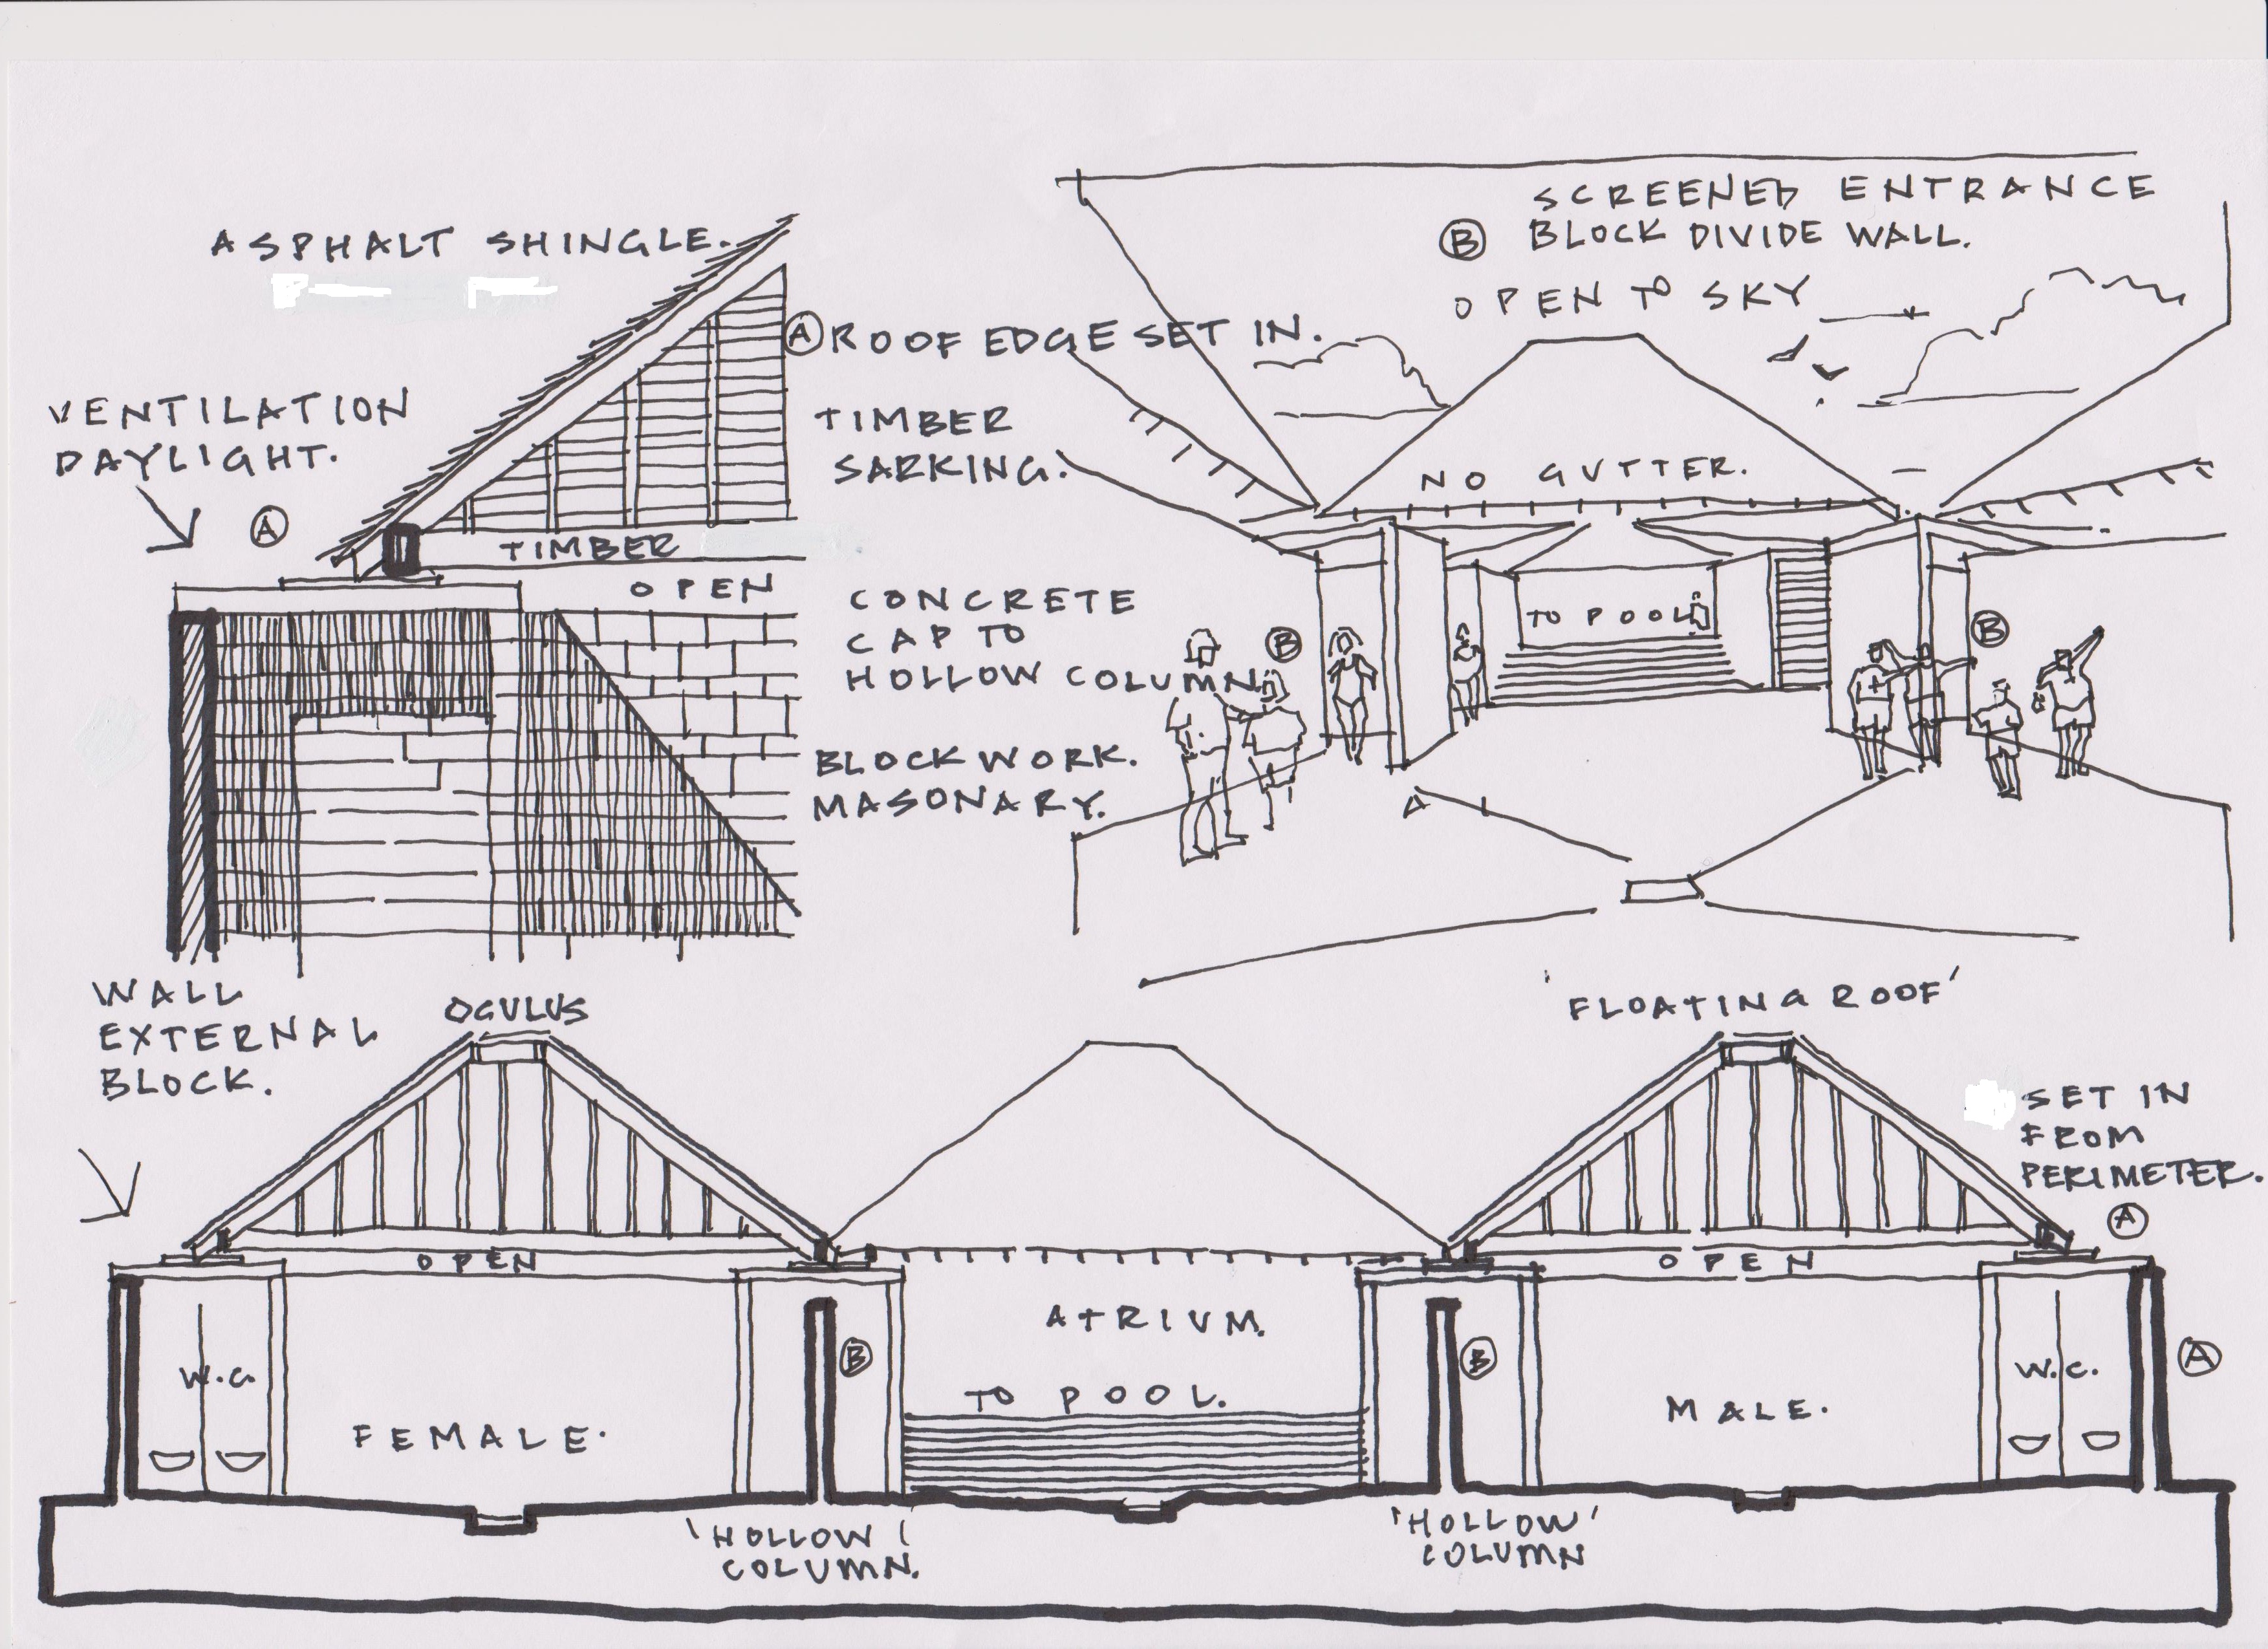 ASPHALT SHINGLE.
VENTILATION
DAYLIGHT.
A
A ROOF EDGE SET IN.
TIMBER
SARKING.
TIMBER
OPEN
CONCRETE
CAP TO
HOLLOW COLUMN
BLOCKWORK.
MASONARY.
WALL
EXTERNAL
BLOCK.
SCREENED ENTRANCE
B BLOCK DIVIDE WALL.
OPEN TO SKY
NO GUTTER.
TO POOL
B
B
OCULUS
'FLOATING ROOF'
SET IN
FROM
PERIMETER.
A
OPEN
OPEN
ATRIUM.
B
B
A
W.C.
W.C.
TO POOL.
FEMALE.
MALE.
'HOLLOW'
COLUMN.
'HOLLOW'
COLUMN